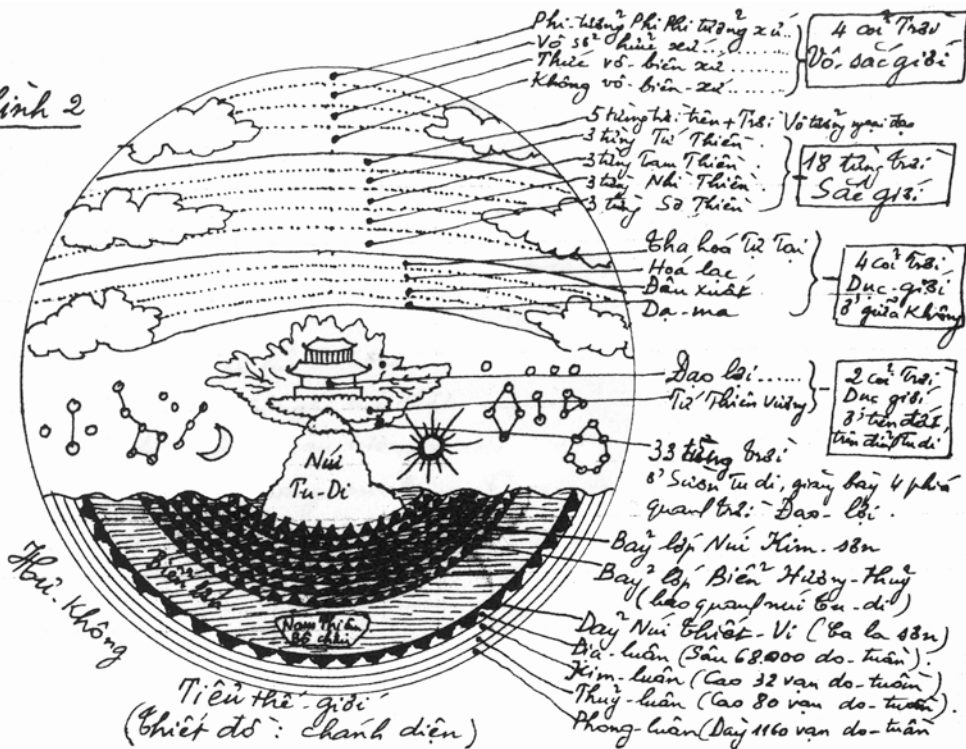 Hình 2
Phi-tưởng Phi Phi tưởng xứ
Vô sở hữu xứ
Thức vô-biên xứ
Không vô-biên-xứ
4 cõi Trời
Vô-sắc giới
5 từng trời trên + Trời Vô tưởng ngoại đạo
3 từng Tứ Thiền
3 từng Tam Thiền
3 từng Nhị Thiền
3 từng Sơ Thiền
18 từng trời
Sắc giới
Tha hoá Tự Tại
Hoá lạc
Đâu xuất
Dạ-ma
4 cõi Trời
Dục-giới
ở giữa Không
Đao lợi
Tứ Thiên Vương
2 cõi Trời
Dục giới
ở trên đất,
trên đỉnh tu di
33 từng trời
ở Sườn tu di, giăng bày 4 phía
quanh trời Đao-lợi.
Núi
Tu-Di
Bảy lớp Núi Kim-sơn
Bảy lớp Biển Hương-thuỷ
(bao quanh núi tu-di)
Dãy Núi Thiết-Vi (Ca la sơn)
Địa-luân (Sâu 68.000 do-tuần).
Kim-luân (Cao 32 vạn do-tuần)
Thuỷ-luân (Cao 80 vạn do-tuần).
Phong-luân (Dày 1160 vạn do-tuần
Biển lớn
Nam Thiện
Bộ châu
Hư-Không
Tiểu thế-giới
(Thiết đồ: chánh diện)